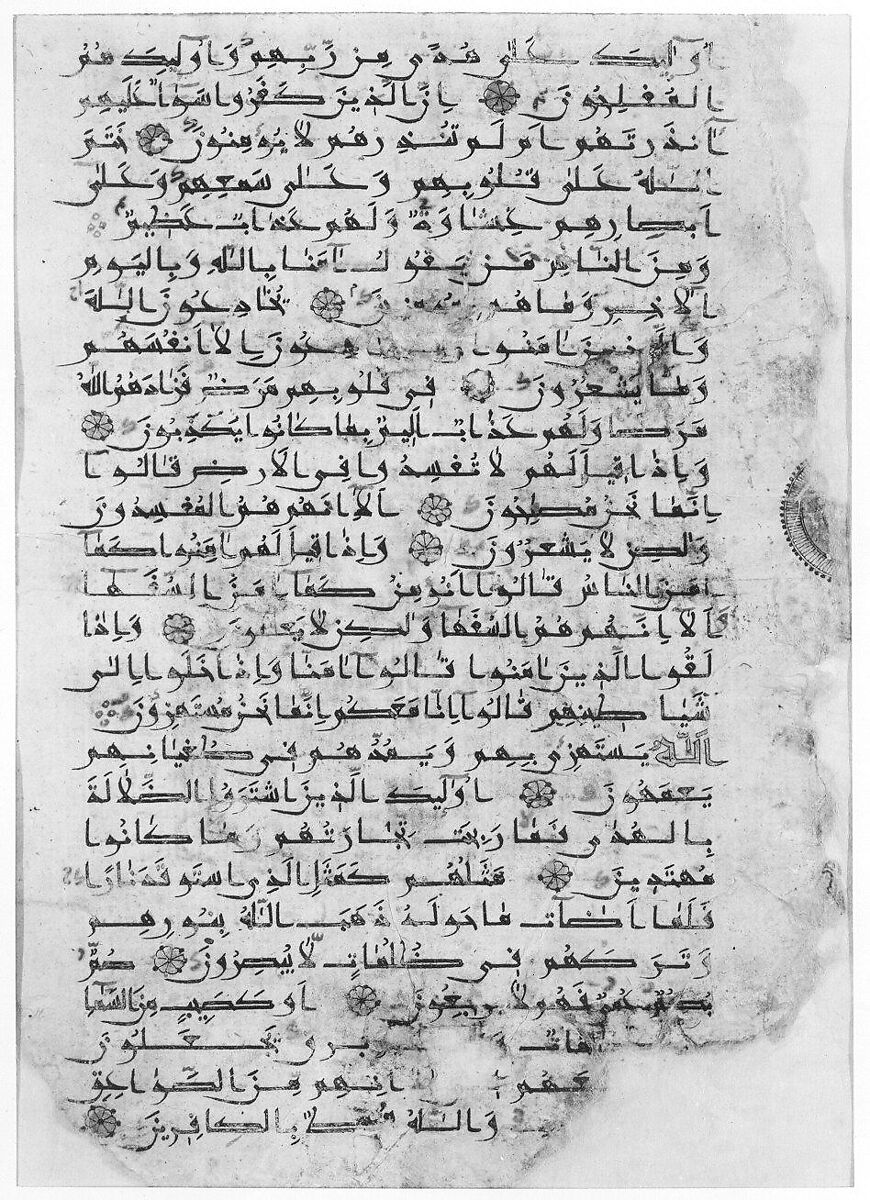 اولىك على هدى من ربهم واولىك هم
المفلحون ان الذين كفروا سوا عليهم
ءانذرتهم ام لم تنذرهم لا يومنون ختم
الله على قلوبهم وعلى سمعهم وعلى
ابصارهم غشاوة ولهم عذاب عظيم
ومن الناس من يقول امنا بالله وباليوم
الاخر وما هم يخادعون الله
والذين امنوا وما يخدعون الا انفسهم
وما يشعرون في قلوبهم مرض فزادهم الله
مرضا ولهم عذاب اليم بما كانوا يكذبون
واذا قيل لهم لا تفسدوا في الارض قالوا
انما نحن مصلحون الا انهم هم المفسدون
ولكن لا يشعرون واذا قيل لهم امنوا كما
امن الناس قالوا انومن كما امن السفها
الا انهم هم السفها ولكن لا يعلمون واذا
لقوا الذين امنوا قالوا امنا واذا خلوا الى
شياطينهم قالوا انا معكم انما نحن مستهزون
الله يستهزي بهم ويمدهم في طغيانهم
يعمهون اولىك الذين اشتروا الضلالة
بالهدى فما ربحت تجارتهم وما كانوا
مهتدين مثلهم كمثل الذي استوقد نارا
فلما اضات ما حوله ذهب الله بنورهم
وتركهم في ظلمات لا يبصرون صم
بكم عمي فهم لا يرجعون او كصيب من السما
مات وبرق يجعلون
بعهم اذانهم من الصواعق
والله محيط بالكافرين